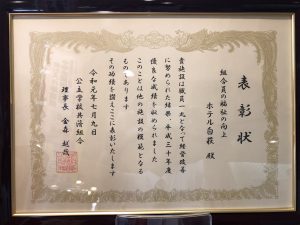 表彰状
組合員の福祉の向上
ホテル白萩 殿
貴施設は職員一丸となって経営改善
に努められた結果、平成三十年度
優良な成績を収められました
このことは他の施設の模範となる
ものであります
その功績を讃えここに表彰いたします
令和元年七月九日
公立学校共済組合
理事長 金森越哉